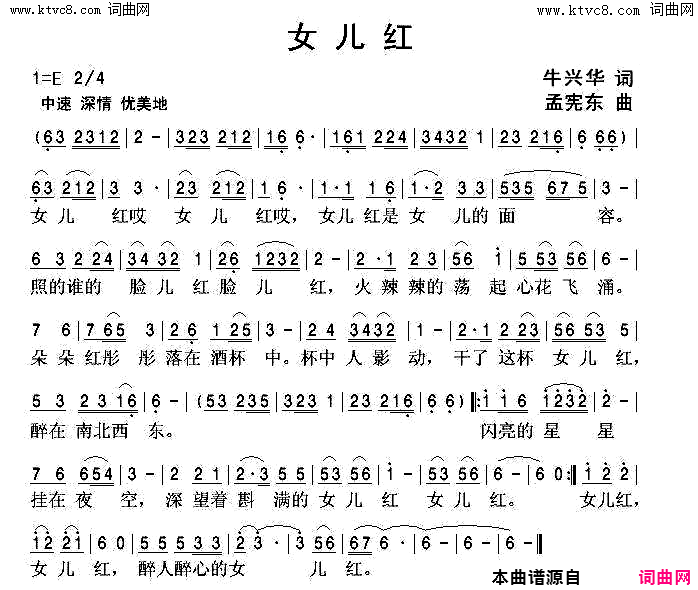 www.ktvc8.com 词曲网 www.ktvc8.com 词曲网
女儿红
1=E 2/4 牛兴华 词
中速 深情 优美地 孟宪东 曲
(63 2312 | 2 - | 323 212 | 16 6· | 161 224 | 3432 1 | 23 216 | 6 66) |
63 212 | 3 3 · | 23 212 | 1 6 · | 1·1 16 | 1·2 33 | 535 675 | 3 - |
女儿 红哎 女儿 红哎, 女儿红是女儿的面 容。
6 3 2 24 | 3 432 1 | 26 1232 | 2 - | 2· 1 | 23 53 | 56 1 | 653 56 | 5 - |
照的谁的 脸儿红脸儿 红, 火辣辣的荡起心花飞涌。
7 6 | 7 65 | 326 125 | 3 - | 24 3432 | 1 - | 2·1 223 | 56 53 | 5 - |
朵朵红彤彤落在酒杯中。杯中人影动, 干了这杯女儿红,
5 3 | 23 16 | 6 - | (53 235 | 323 1 | 34 352 | 23 216 | 6 6) |: 11 6 | 1232 |
醉在南北西东。 闪亮的星星
7 6 | 6 654 | 3 - | 2 2 21 | 2·3 | 53 56 | 53 56 | 6 - | 6 0 :| 12 2 |
挂在夜空, 深望着斟满的女儿红女儿红。 女儿红,
12 21 | 6 0 | 55 53 | 53 5 | 2 3· | 3 56 | 6· 6 - | 6 - | 6 - ‖
女儿红, 醉人醉心的女 儿红。
本曲谱源自 词曲网